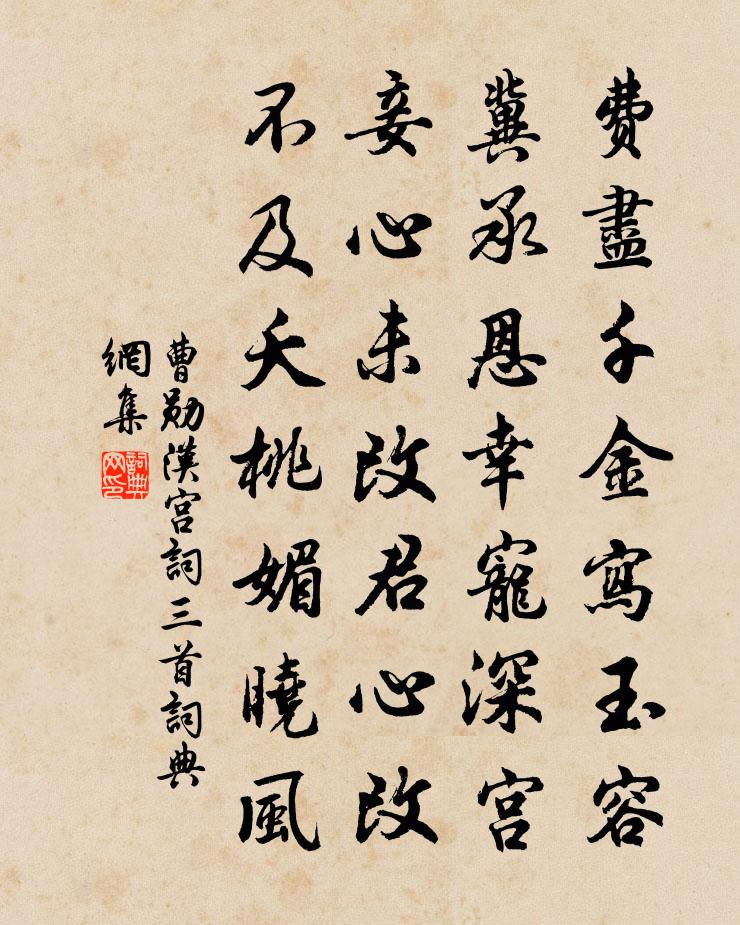 費盡千金寫玉容
冀承恩幸寵深宮
妾心未改君心改
不及夭桃媚曉風
曹勛漢宮詞三首詞典
網集
詞典
网印